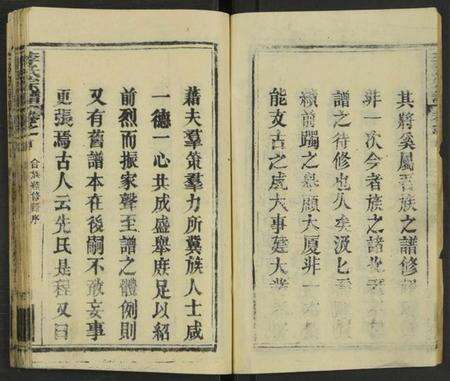 其將奚屬吾族之譜修
非一次今者族之諸
譜之待修也久矣汲汲
續前躅之舉顧大厦非一
能支古之成大事建大業
藉夫羣策羣力所冀族人士咸
一德一心共成盛舉庶足以紹
前烈而振家聲至譜之體例則
又有舊譜本在後嗣不敢妄事
更張焉古人云先民是程又曰
李氏宗譜
合族續修譜序